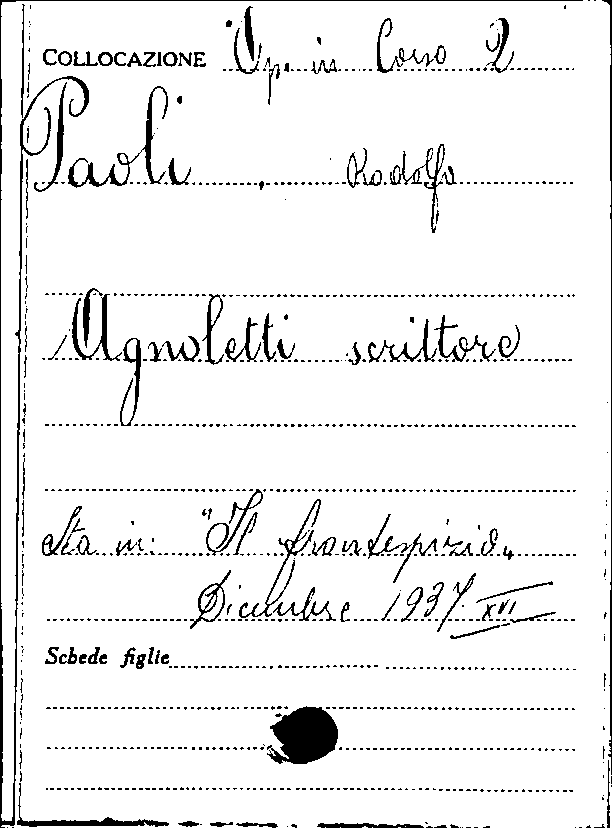 COLLOCAZIONE Op. in Corso 2
Paoli, Rodolfo
Agnoletti scrittore
Sta in: "Il frontespizio„
Dicembre 1937 XVI
Schede figlie